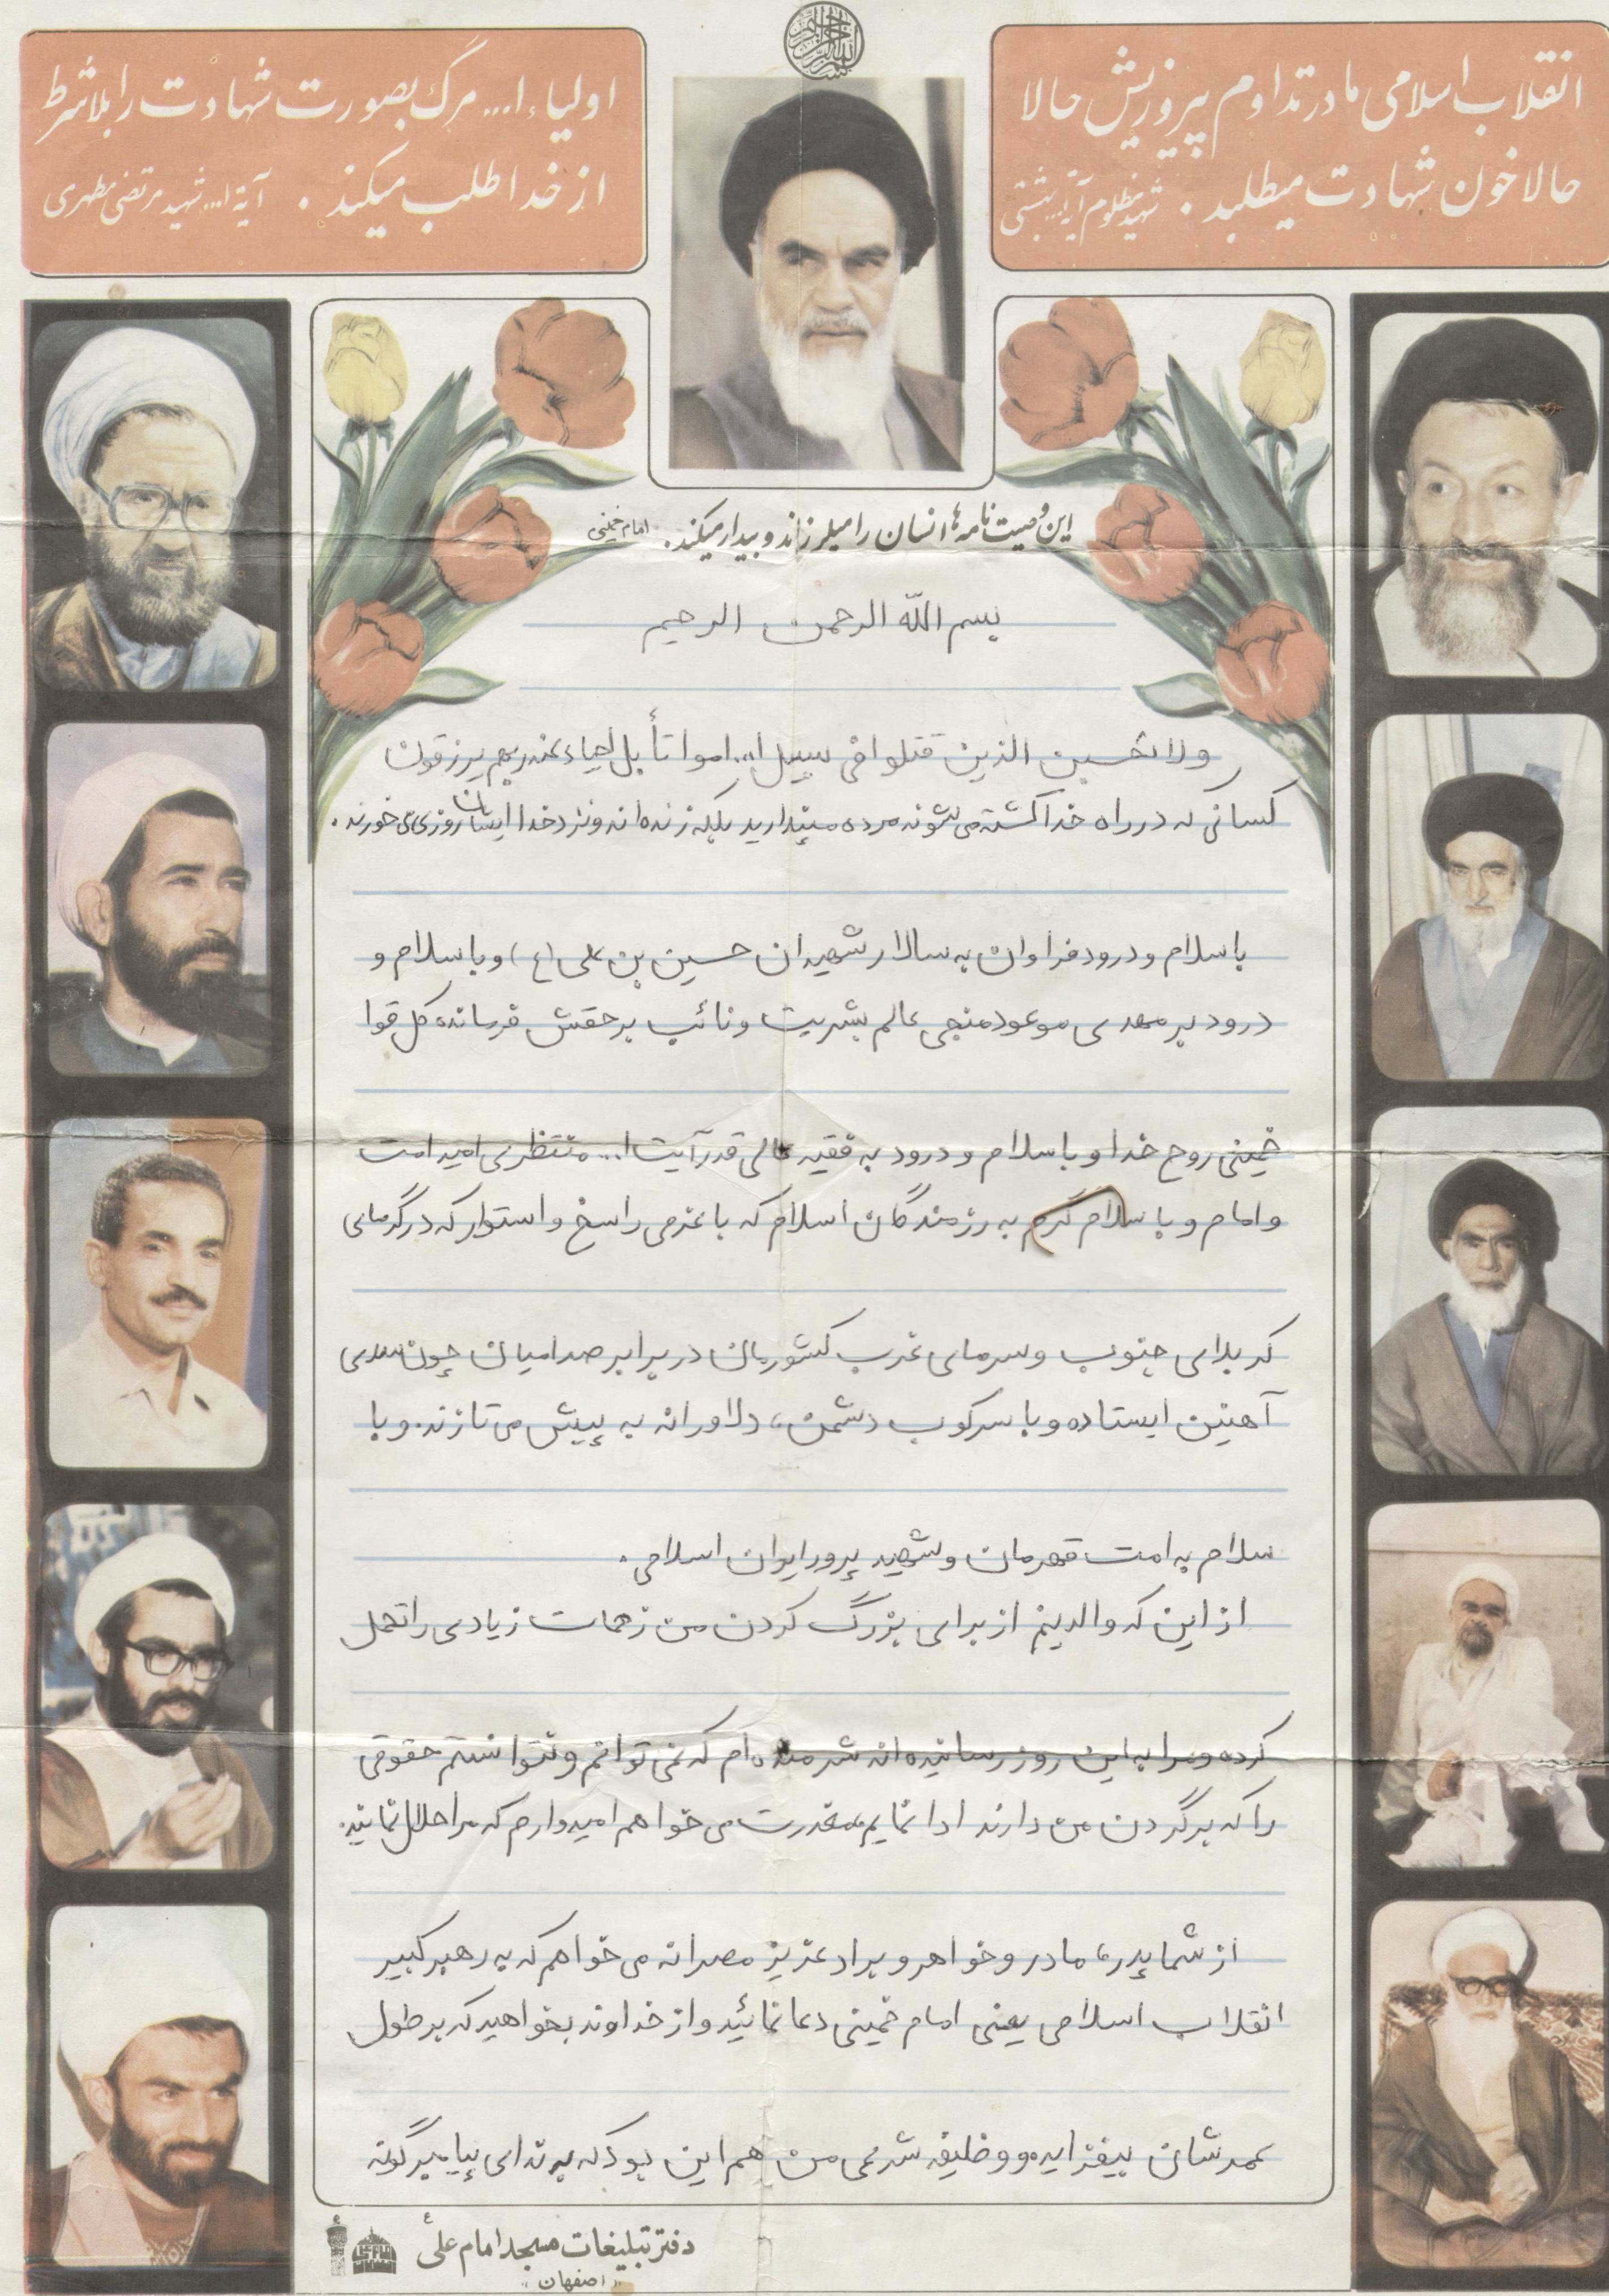 انقلاب اسلامی ما در تداوم پیروزیش حالا
حالا خون شهادت میطلبد . شهید مظلوم آیة... بهشتی
اولیاء ا... مرگ بصورت شهادت را بلاشرط
از خدا طلب میکند . آیة ا... شهید مرتضی مطهری
این وصیت نامه‌ها انسان را میلرزاند و بیدار میکند. امام خمینی
بسم الله الرحمن الرحیم
ولا تحسبن الذین قتلوا فی سبیل ا... امواتاً بل احیاء عند ربهم یرزقون
کسانی که در راه خدا کشته می شوند مرده مپندارید بلکه زنده اند و نزد خدا ایشان روزی می خورند .
با سلام و درود فراوان به سالار شهیدان حسین بن علی (ع) و با سلام و
درود بر مهدی موعود منجی عالم بشریت و نائب برحقش فرمانده کل قوا
خمینی روح خدا و با سلام و درود به فقیه عالی قدر آیت ا... منتظری امید امت
و امام و با سلام گرم به رزمندگان اسلام که با عزمی راسخ و استوار که در گرمای
کربلای جنوب و سرمای غرب کشورمان در برابر صدامیان چون سدی
آهنین ایستاده و با سرکوب دشمن، دلاورانه به پیش می تازند. و با
سلام به امت قهرمان و شهید پرور ایران اسلامی.
از این که والدینم از برای بزرگ کردن من زحمات زیادی را تحمل
کرده و مرا به این روز رسانیده اند شرمنده ام که نمی توانم و نتوانستم حقوقی
را که بر گردن من دارند ادا نمایم معذرت می خواهم امیدوارم که مرا حلال نمایند.
از شما پدر، مادر و خواهر و براد عزیز مصرانه می خواهم که به رهبر کبیر
انقلاب اسلامی یعنی امام خمینی دعا نمائید و از خداوند بخواهید که بر طول
عمرشان بیفزاید و وظیفه شرعی من هم این بود که به ندای پیامبر گونه
دفتر تبلیغات مسجد امام علی ع
«اصفهان»